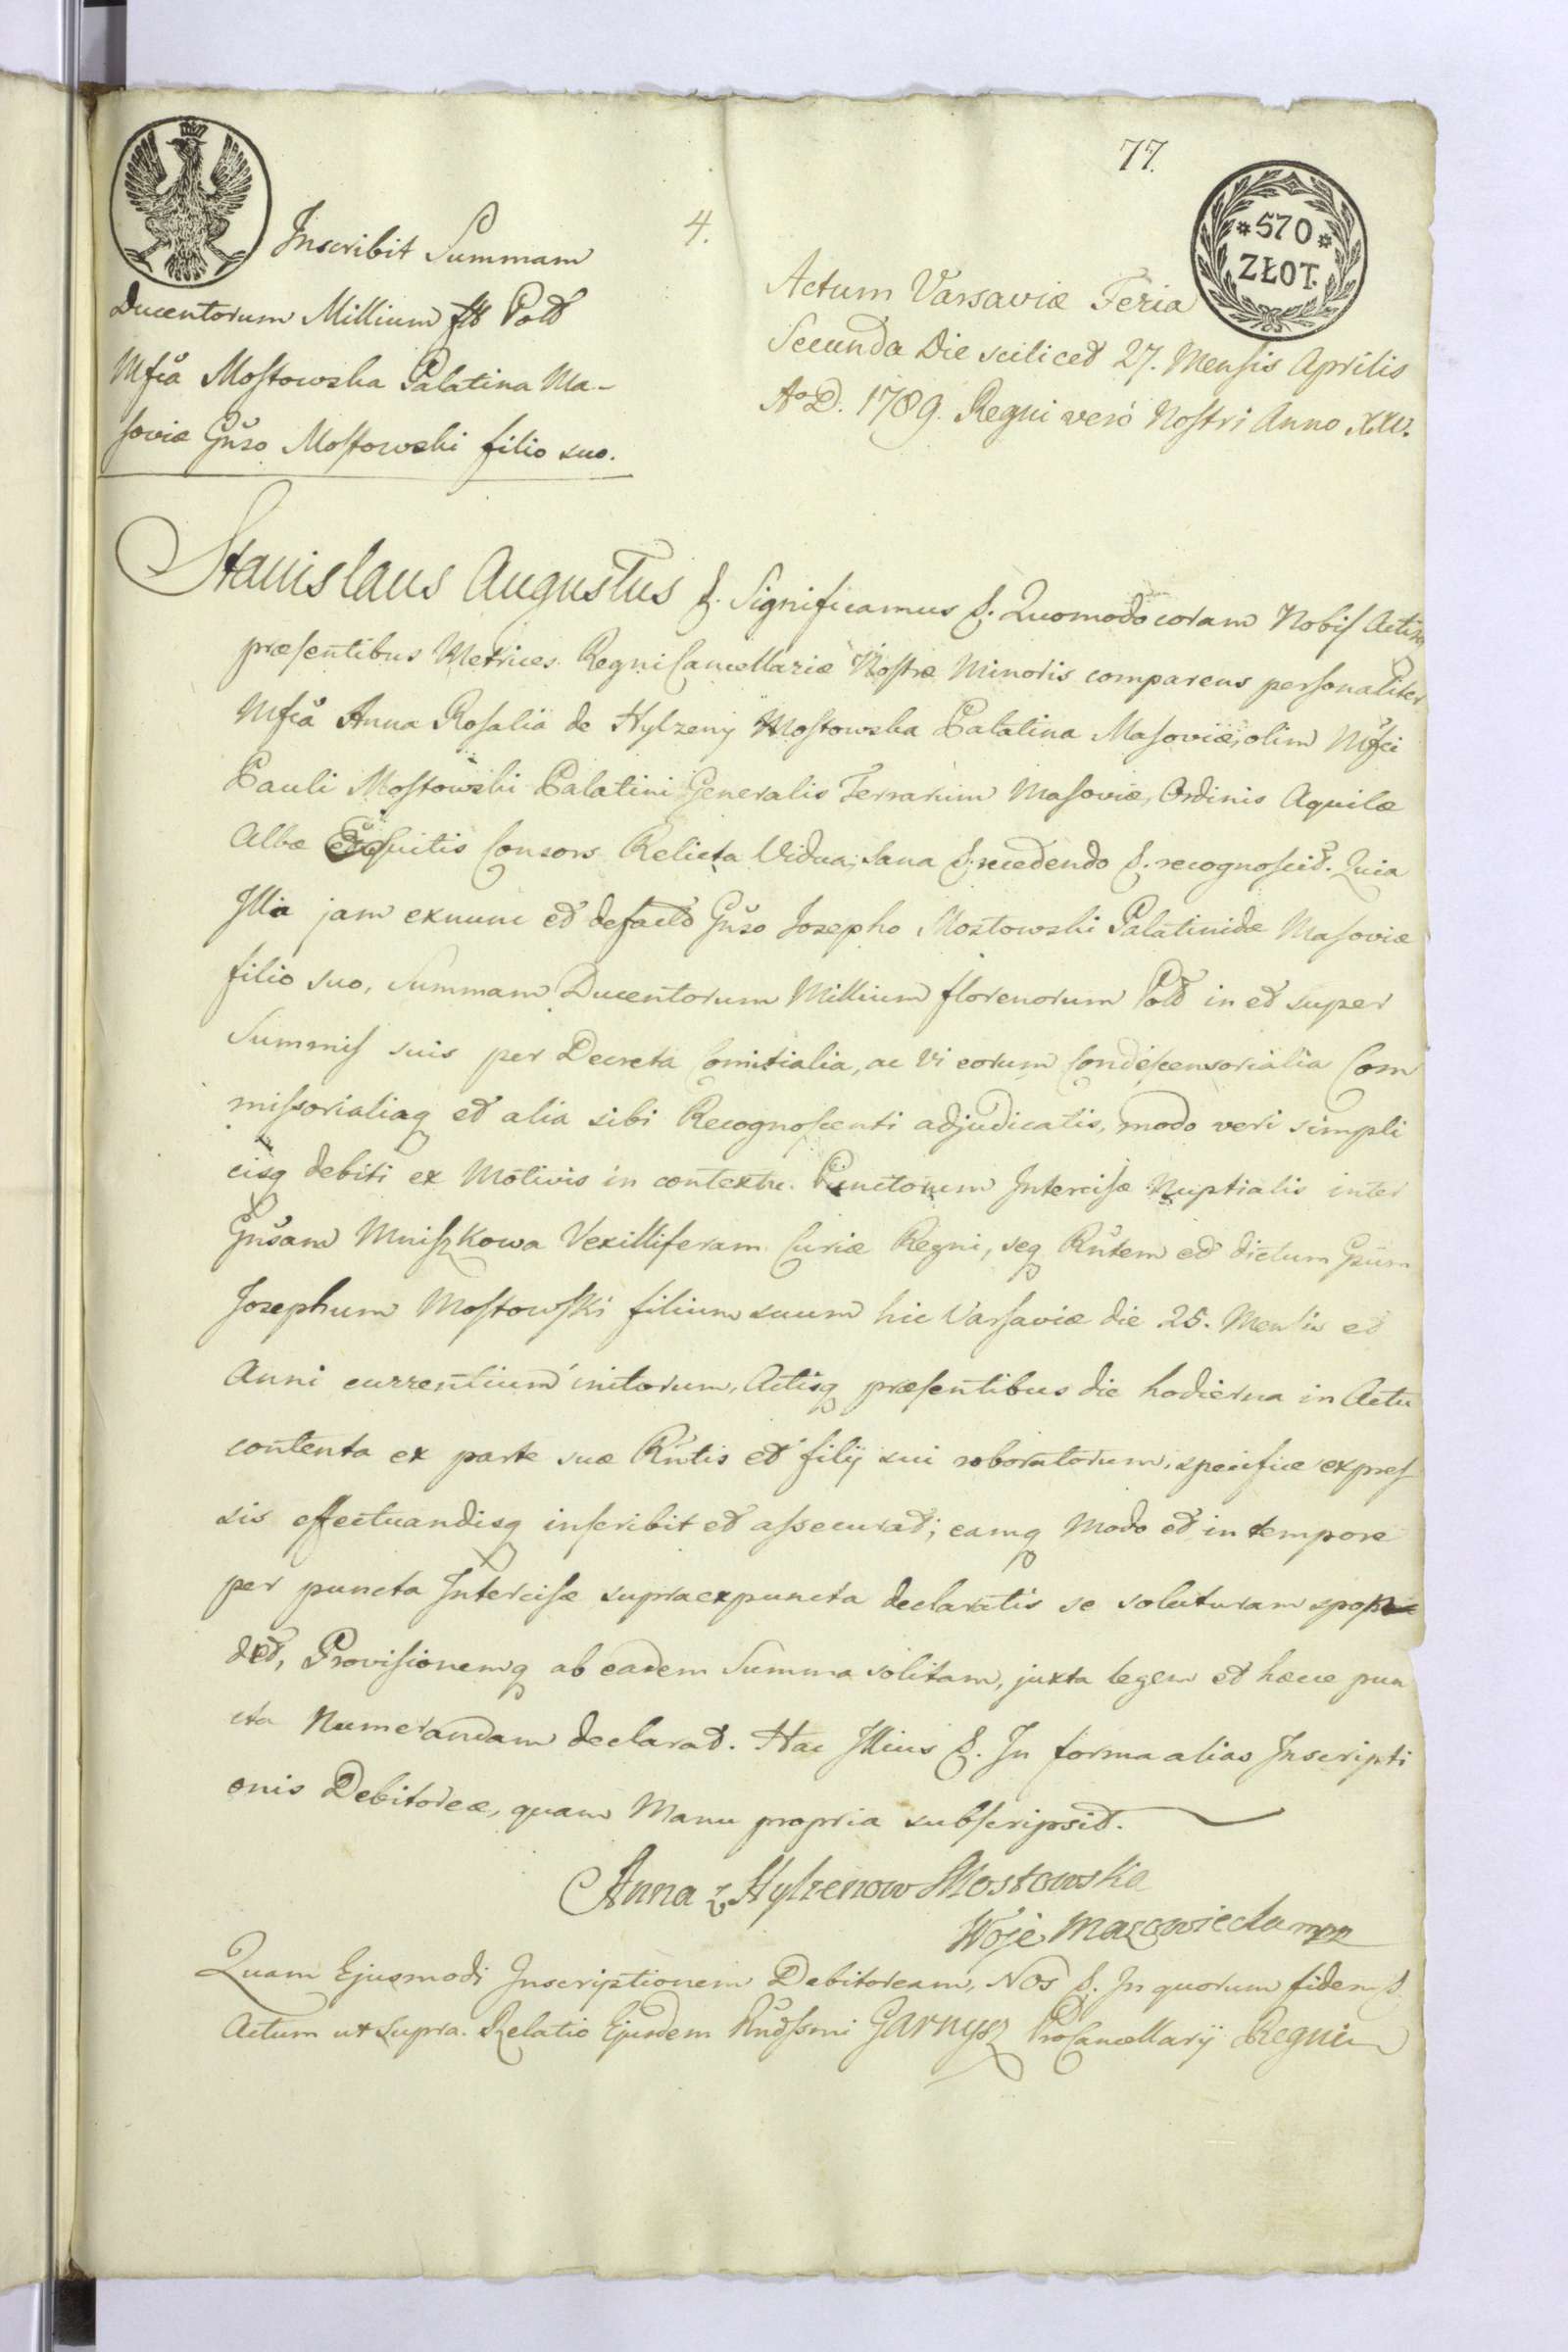 77.
4.
* 570 *
ZŁOT.
Inscribit Summam
Ducentorum Millium Pold
Mfca Mostowska Palatina Ma-
soviæ Gñso Mostowski filio suo.
Actum Varsaviæ Feria
Secunda Die scilicet 27. Mensis Aprilis
A° D. 1789. Regni veró Nostri Anno XXV.
Stanislaus Augustus &. Significamus &. Quomodo coram Nobis Actisq
præsentibus Metrices Regni Cancellariæ Nostræ Minoris comparens personaliter
Mfca Anna Rosalia de Hylzeny Mostowska Palatina Masoviæ, olim Mfci
Pauli Mostowski Palatini Generalis Terrarum Masoviæ, Ordinis Aquilæ
Albæ Equitis Consors Relicta Vidua, sana &. recedendo &. recognoscit. Quia
Illa jam exnunc et defacto Gñso Josepho Mostowski Palatinidæ Masoviæ
filio suo, Summam Ducentorum Millium florenorum Pold in et super
Summis suis per Decreta Comitialia, ac vi eorum Condescensorialia Com
missorialiaq et alia sibi Recognoscenti adjudicatis, modo veri simpli
cisq debiti ex Motivis in contextu Punctorum Intercisæ Nuptialis inter
Gñsam Mniszkowa Vexilliferam Curiæ Regni, seq Rñtem et dictum Gsum
Josephum Mostowski filium suum hic Varsaviæ die 25. Mensis et
Anni currentium initorum, Actisq præsentibus die hodierna in Actu
contenta ex parte suæ Rñtis et filij sui roboratorum, specifice expres
sis effectuandisq inscribit et assecurat; eamq Modo et in tempore
per puncta Intercisæ supraexpuncta declaratis se soluturam spopon
det, Provisionemq ab eadem Summa solitam, juxta legem et hæcce pun
cta Numerandam declarat. Hac Illius &. In forma alias Inscripti
onis Debitoreæ, quam Manu propria subscripsit.
Anna z Hylzenow Mostowska
Woje Mazowiecka mpp
Quam Ejusmodi Inscriptionem Debitoream, Nos &. In quorum fidem &.
Actum ut supra. Relatio Ejusdem Rñdssmi Garnysz ProCancellarij Regni